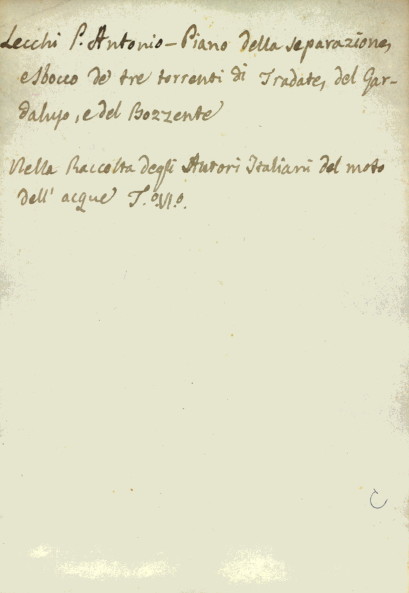 Lecchi P. Antonio – Piano della separazione,
e sbocco de' tre torrenti di Tradate, del Gar-
daluso, e del Bozzente
Nella Raccolta degli Autori Italiani del moto
dell' acque T.º VI.º